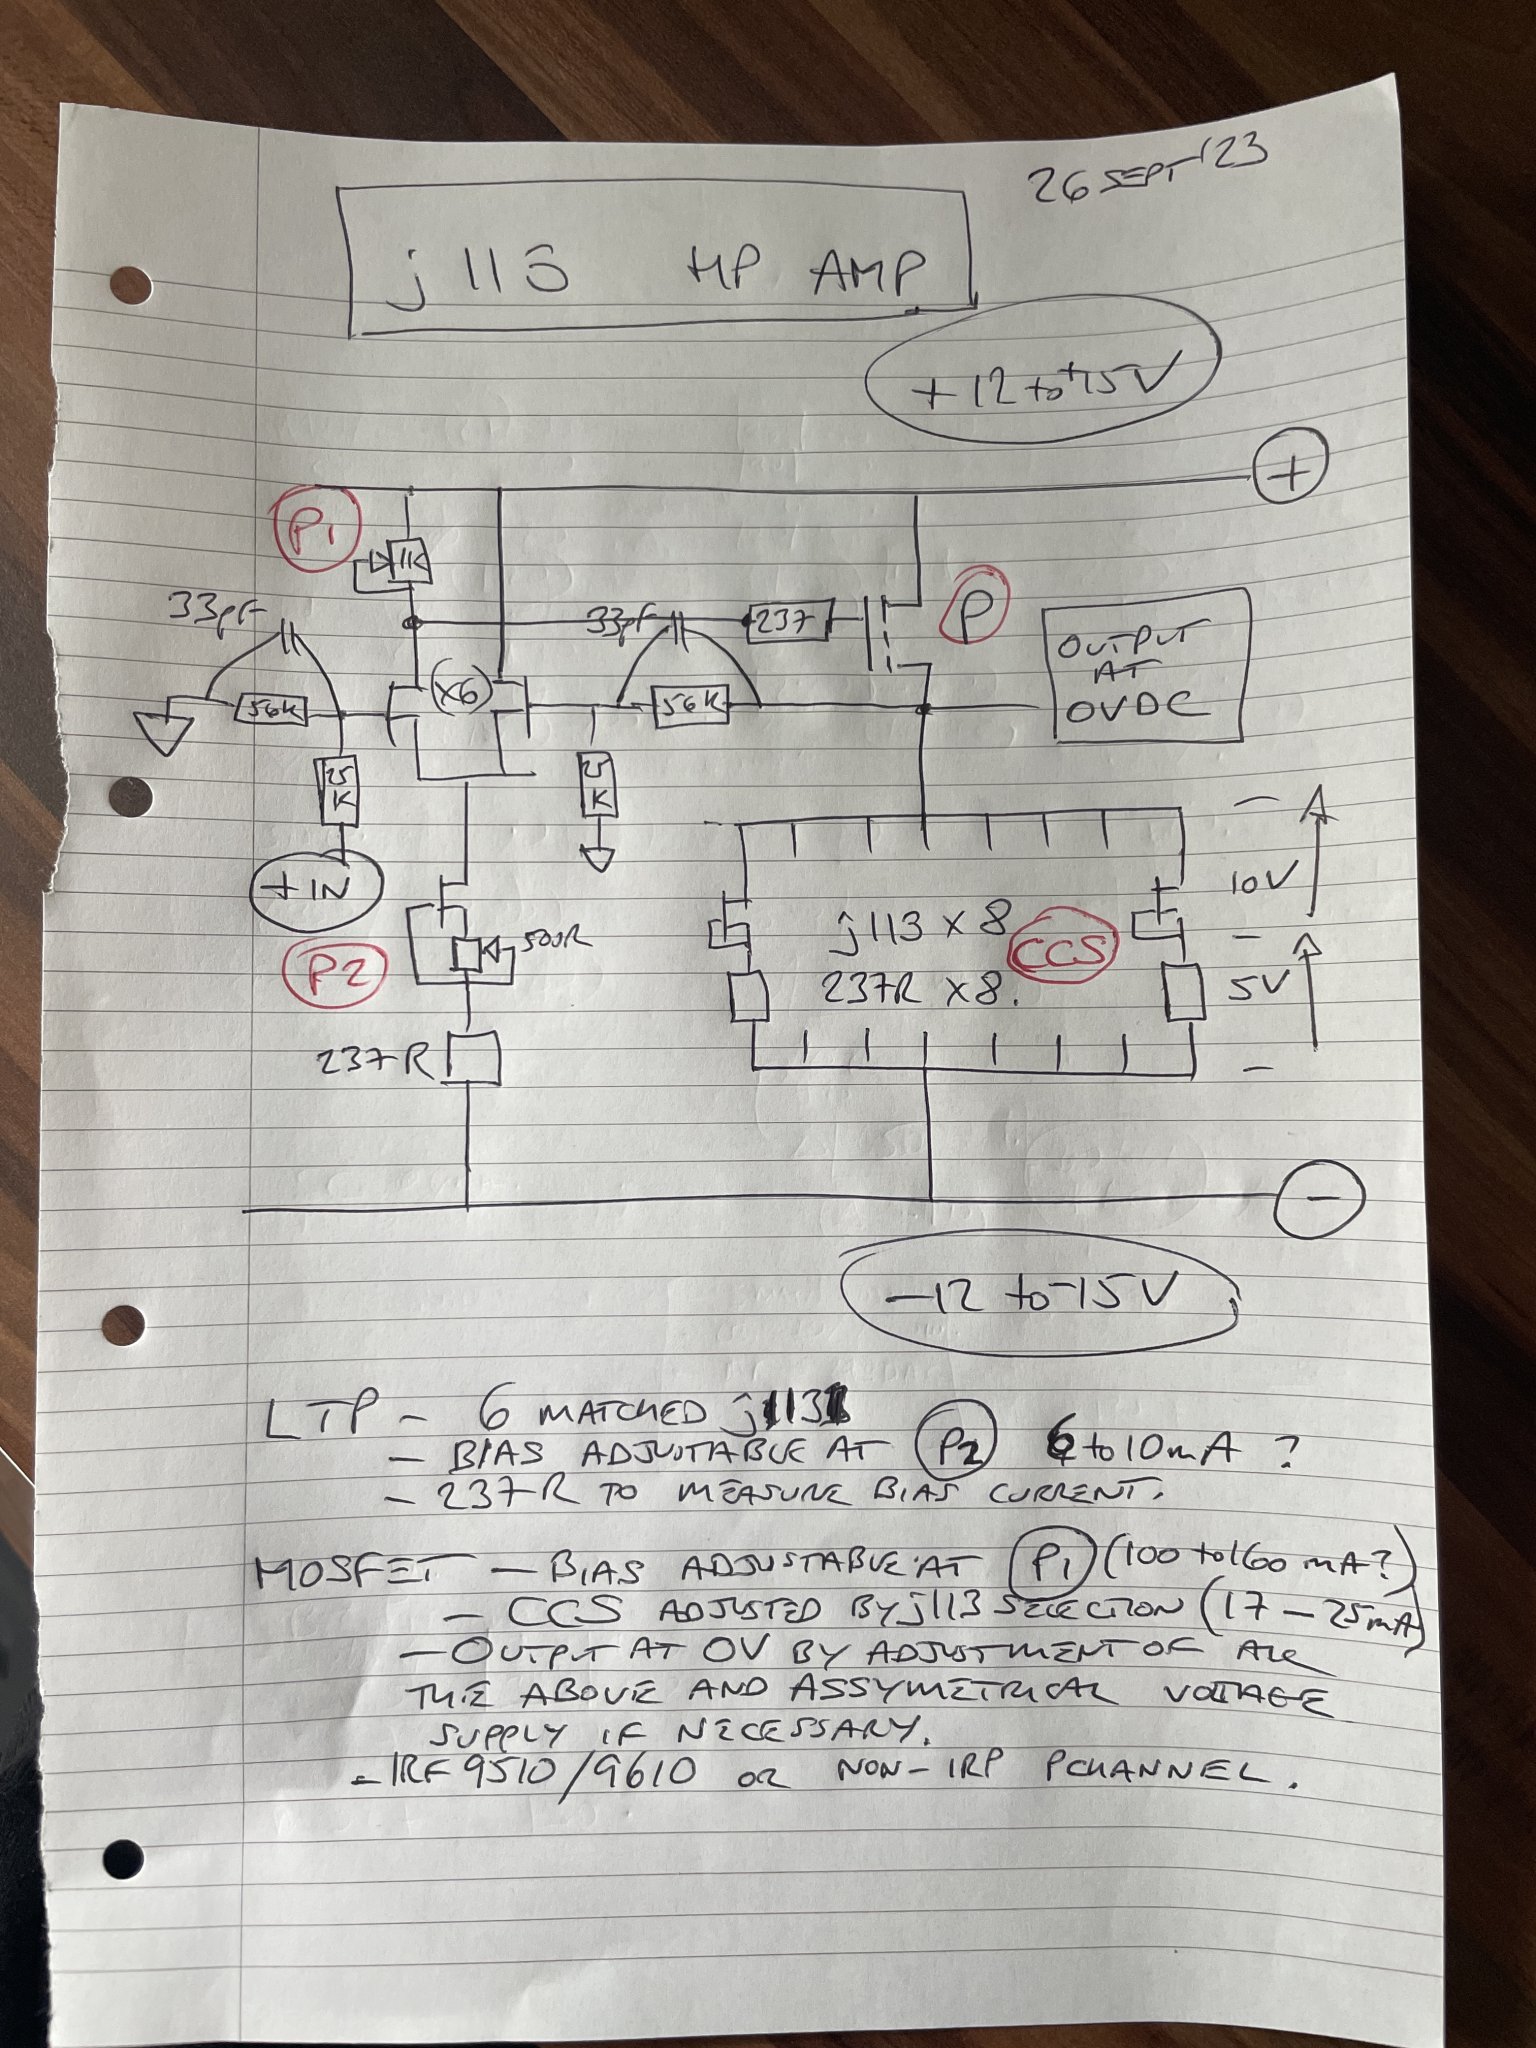 26 SEPT '23
j113 HP AMP
+12 to +15V
+
P1
1K
33pF
33pF
237
P
OUTPUT
AT
0VDC
56K
(x6)
56K
25
K
25
K
+IN
500R
P2
j113 x 8
CCS
237R x 8.
10V
5V
237R
-
-12 to -15V
LTP - 6 MATCHED j113
- BIAS ADJUSTABLE AT P2 6 to 10mA ?
- 237R TO MEASURE BIAS CURRENT.
MOSFET - BIAS ADJUSTABLE AT P1 (100 to 160 mA?)
- CCS ADJUSTED BY j113 SELECTION (17 - 25mA)
- OUTPUT AT 0V BY ADJUSTMENT OF ALL
THE ABOVE AND ASSYMETRICAL VOLTAGE
SUPPLY IF NECESSARY.
- IRF 9510/9610 OR NON-IRP PCHANNEL.